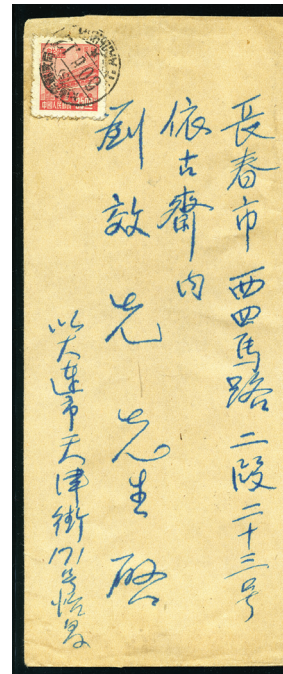 長春市西四馬路二段二十三号
依古齋内
劉效先先生啟
以大連市天津街171号
中国人民邮政